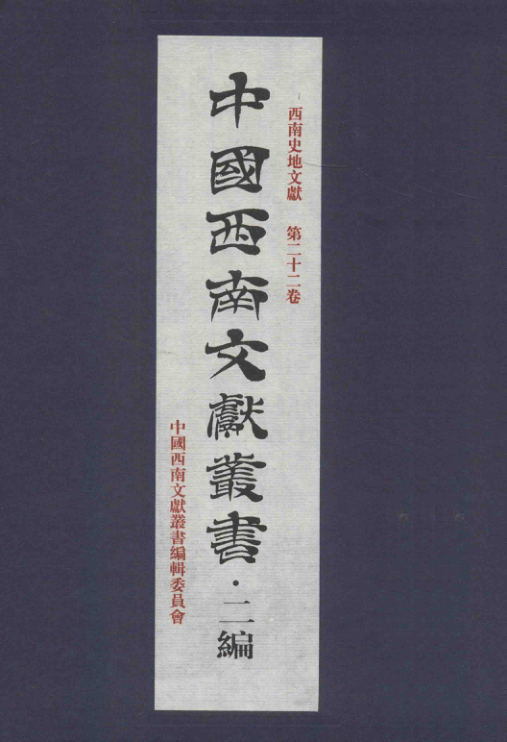 西南史地文獻 第二十二卷
中國西南文獻叢書·二編
中國西南文獻叢書編輯委員會